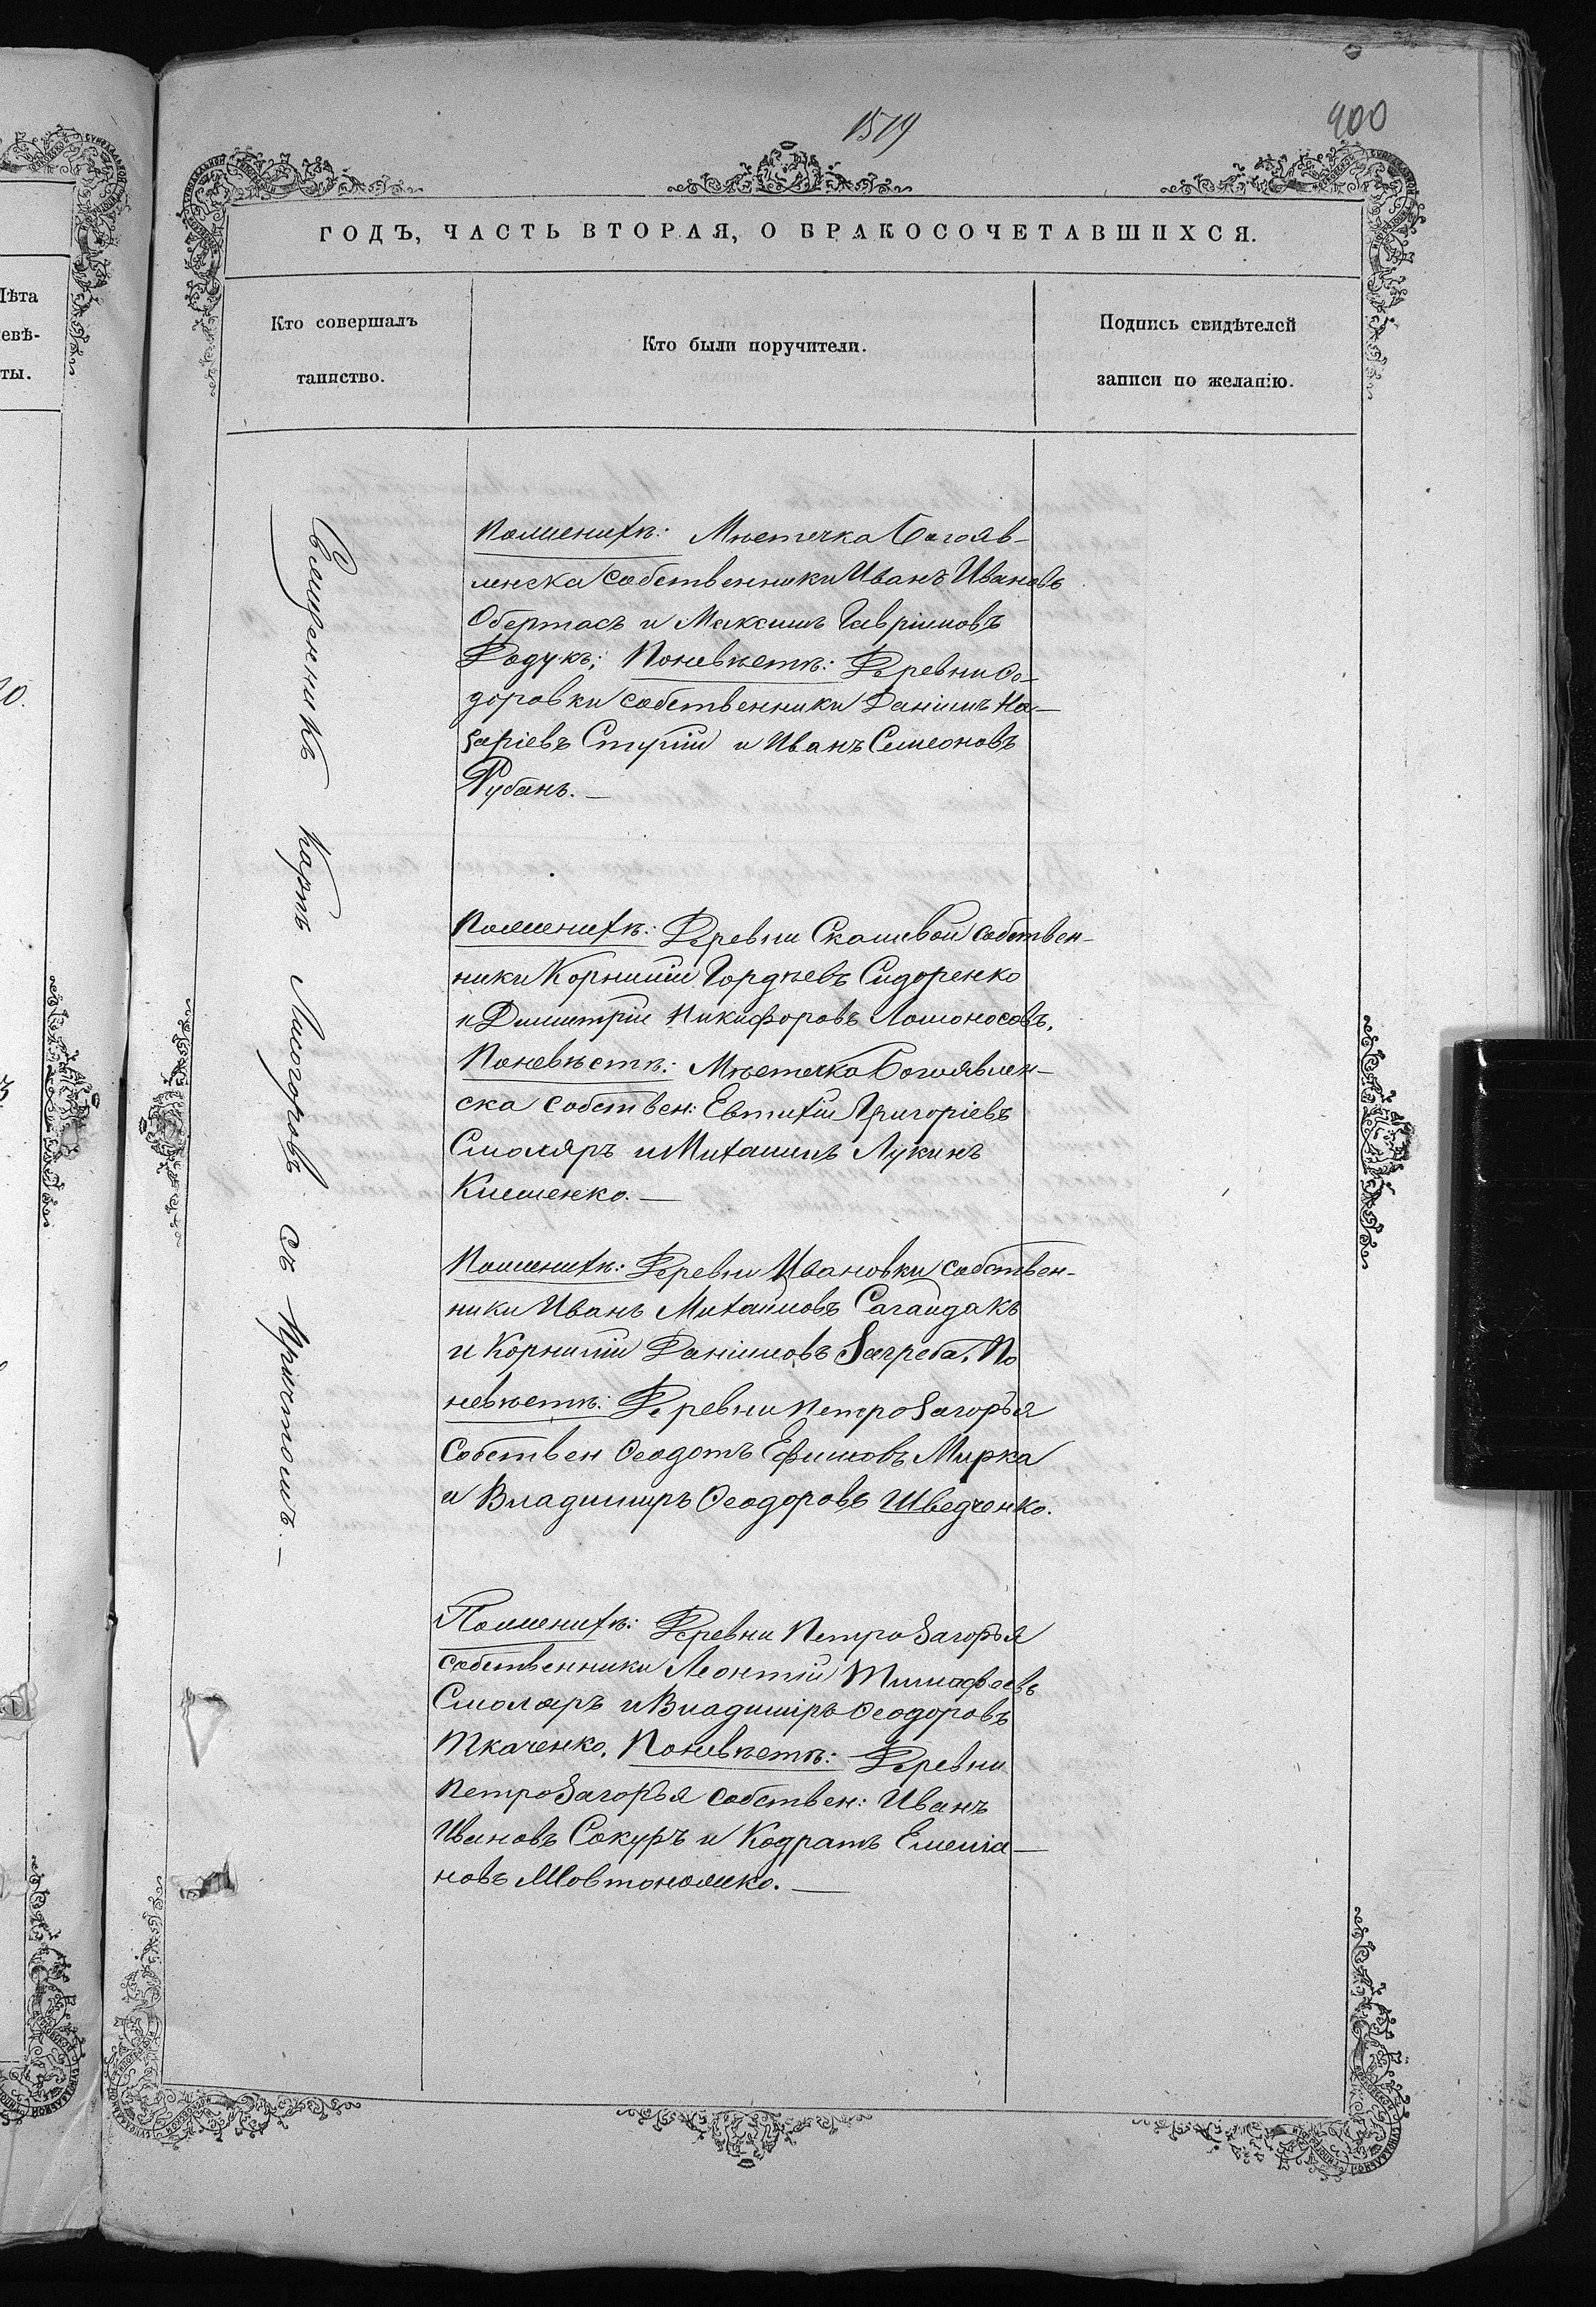 1579
900
ГОДЪ, ЧАСТЬ ВТОРАЯ, О БРАКОСОЧЕТАВШИХСЯ.
Кто совершалъ
таинство.
Кто были поручители.
Подпись свидѣтелей
записи по желанію.
Священникъ Карпъ Лисогоровъ съ Причтомъ. —
Пожениxѣ: Мѣстечка Богояв-
ленска собственники Иванъ Ивановъ
Обертасъ и Максимъ Гавріиловъ
Дадукъ; Поневѣстѣ: Деревни Ѳо-
доровки собственники Даніилъ На-
заріевъ Ступій и Иванъ Семеоновъ
Рубанъ. —
Поженихѣ: Деревни собствен-
ники Корнилій Гордѣевъ Сидоренко
и Димитрій Никифоровъ Ломоносовъ.
Поневѣстѣ: Мѣстечка Богоявлен-
ска собствен: Евтихій Григоріевъ
Смоляръ и Михаилъ Лукинъ
Клименко. —
Поженихѣ: Деревни Ивановки собствен-
ники Иванъ Михаиловъ Сагайдакъ
и Корнилій Даніиловъ Загреба. По
невѣстѣ: Деревни ПетроЗагорья
собствен Ѳеодотъ Ефимовъ Мирка
и Владимиръ Ѳеодоровъ Шведченко.
Поженихѣ: Деревни ПетроЗагорья
собственники Леонтій Тимофеевъ
Смоляръ и Владиміръ Ѳеодоровъ
Ткаченко. Поневѣстѣ: Деревни
ПетроЗагорья собствен: Иванъ
Ивановъ Сокуръ и Кодратъ Емелiа-
новъ